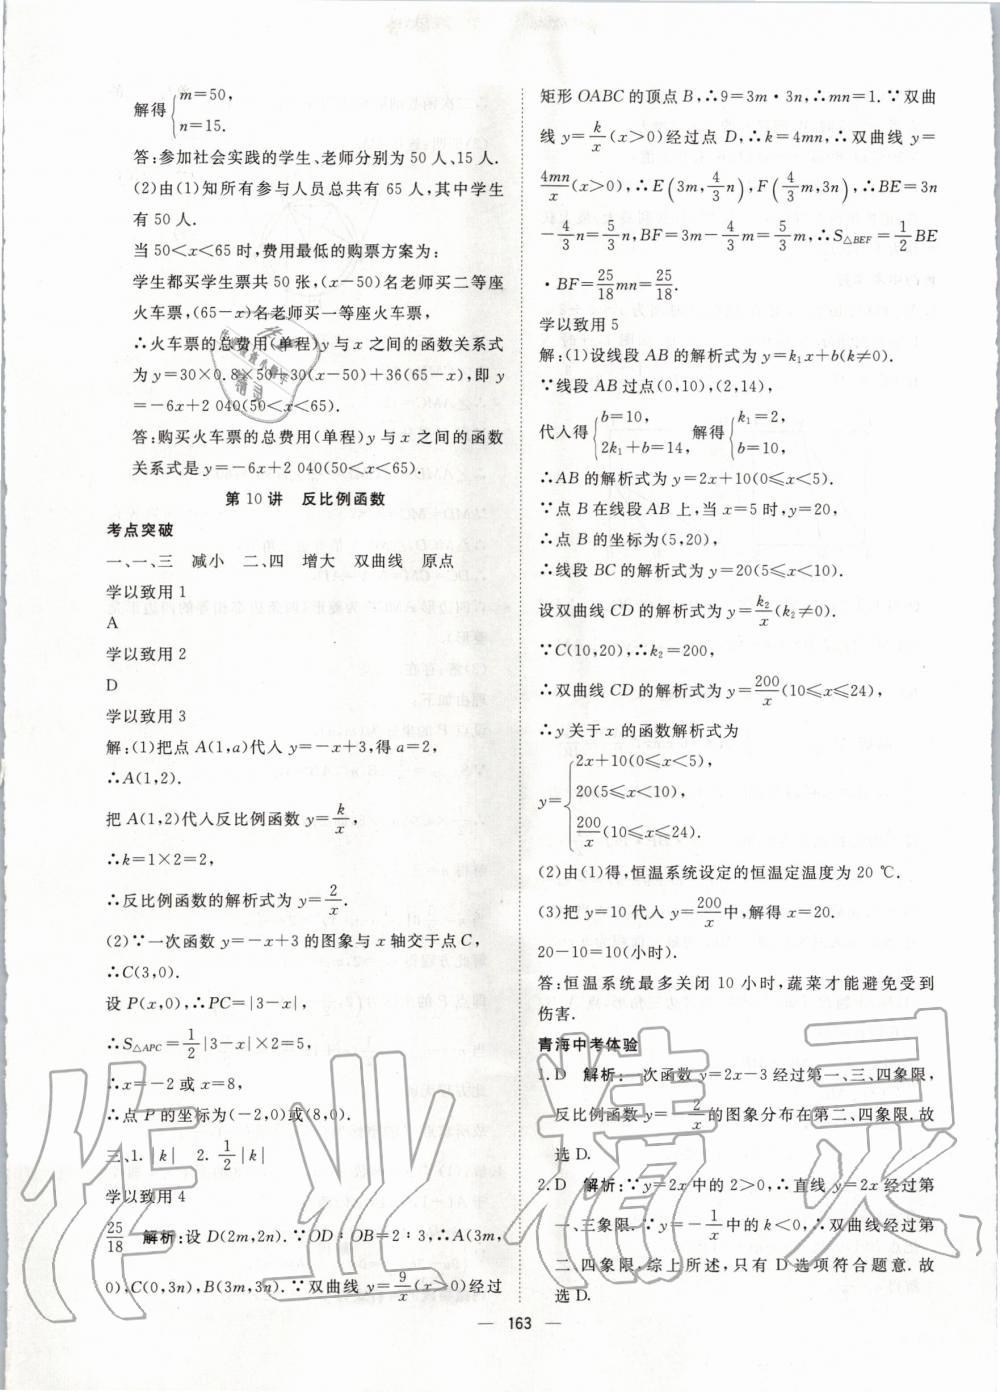 解得{m=50,
n=15.
答:参加社会实践的学生、老师分别为 50 人、15 人.
(2)由(1)知所有参与人员总共有 65 人,其中学生
有 50 人.
当 50<x<65 时,费用最低的购票方案为:
学生都买学生票共 50 张,(x-50)名老师买二等座
火车票,(65-x)名老师买一等座火车票,
∴火车票的总费用(单程)y 与 x 之间的函数关系式
为 y=30×0.8×50+30(x-50)+36(65-x),即 y
=-6x+2 040(50<x<65).
答:购买火车票的总费用(单程)y 与 x 之间的函数
关系式是 y=-6x+2 040(50<x<65).
第 10 讲 反比例函数
考点突破
一、一、三 减小 二、四 增大 双曲线 原点
学以致用 1
A
学以致用 2
D
学以致用 3
解:(1)把点 A(1,a)代入 y=-x+3,得 a=2,
∴A(1,2).
把 A(1,2)代入反比例函数 y=k/x,
∴k=1×2=2,
∴反比例函数的解析式为 y=2/x.
(2)∵一次函数 y=-x+3 的图象与 x 轴交于点 C,
∴C(3,0).
设 P(x,0),∴PC=|3-x|,
∴S△APC=1/2|3-x|×2=5,
∴x=-2 或 x=8,
∴点 P 的坐标为(-2,0)或(8,0).
三、1. |k| 2. 1/2|k|
学以致用 4
25/18 解析:设 D(2m,2n). ∵OD:OB=2:3,∴A(3m,
0),C(0,3n),B(3m,3n). ∵双曲线 y=9/x(x>0)经过
矩形 OABC 的顶点 B,∴9=3m·3n,∴mn=1. ∵双曲
线 y=k/x(x>0)经过点 D,∴k=4mn,∴双曲线 y=
4mn/x(x>0),∴E(3m,4/3n),F(4/3m,3n),∴BE=3n
-4/3n=5/3n,BF=3m-4/3m=5/3m,∴S△BEF=1/2BE
·BF=25/18mn=25/18.
学以致用 5
解:(1)设线段 AB 的解析式为 y=k₁x+b(k≠0).
∵线段 AB 过点(0,10),(2,14),
代入得{b=10, 解得{k₁=2,
2k₁+b=14. b=10,
∴AB 的解析式为 y=2x+10(0≤x<5).
∵点 B 在线段 AB 上,当 x=5 时,y=20,
∴点 B 的坐标为(5,20),
∴线段 BC 的解析式为 y=20(5≤x<10),
设双曲线 CD 的解析式为 y=k₂/x(k₂≠0).
∵C(10,20),∴k₂=200,
∴双曲线 CD 的解析式为 y=200/x(10≤x≤24),
∴y 关于 x 的函数解析式为
2x+10(0≤x<5),
y={20(5≤x<10),
200/x(10≤x≤24).
(2)由(1)得,恒温系统设定的恒温定温度为 20 ℃.
(3)把 y=10 代入 y=200/x中,解得 x=20.
20-10=10(小时).
答:恒温系统最多关闭 10 小时,蔬菜才能避免受到
伤害.
青海中考体验
1. D 解析:一次函数 y=2x-3 经过第一、三、四象限,
反比例函数 y=-2/x的图象分布在第二、四象限. 故
选 D.
2. D 解析:∵y=2x 中的 2>0,∴直线 y=2x 经过第
一、三象限. ∵y=-1/x中的 k<0,∴双曲线经过第
二、四象限,综上所述,只有 D 选项符合题意. 故
选 D.
— 163 —
作业精灵